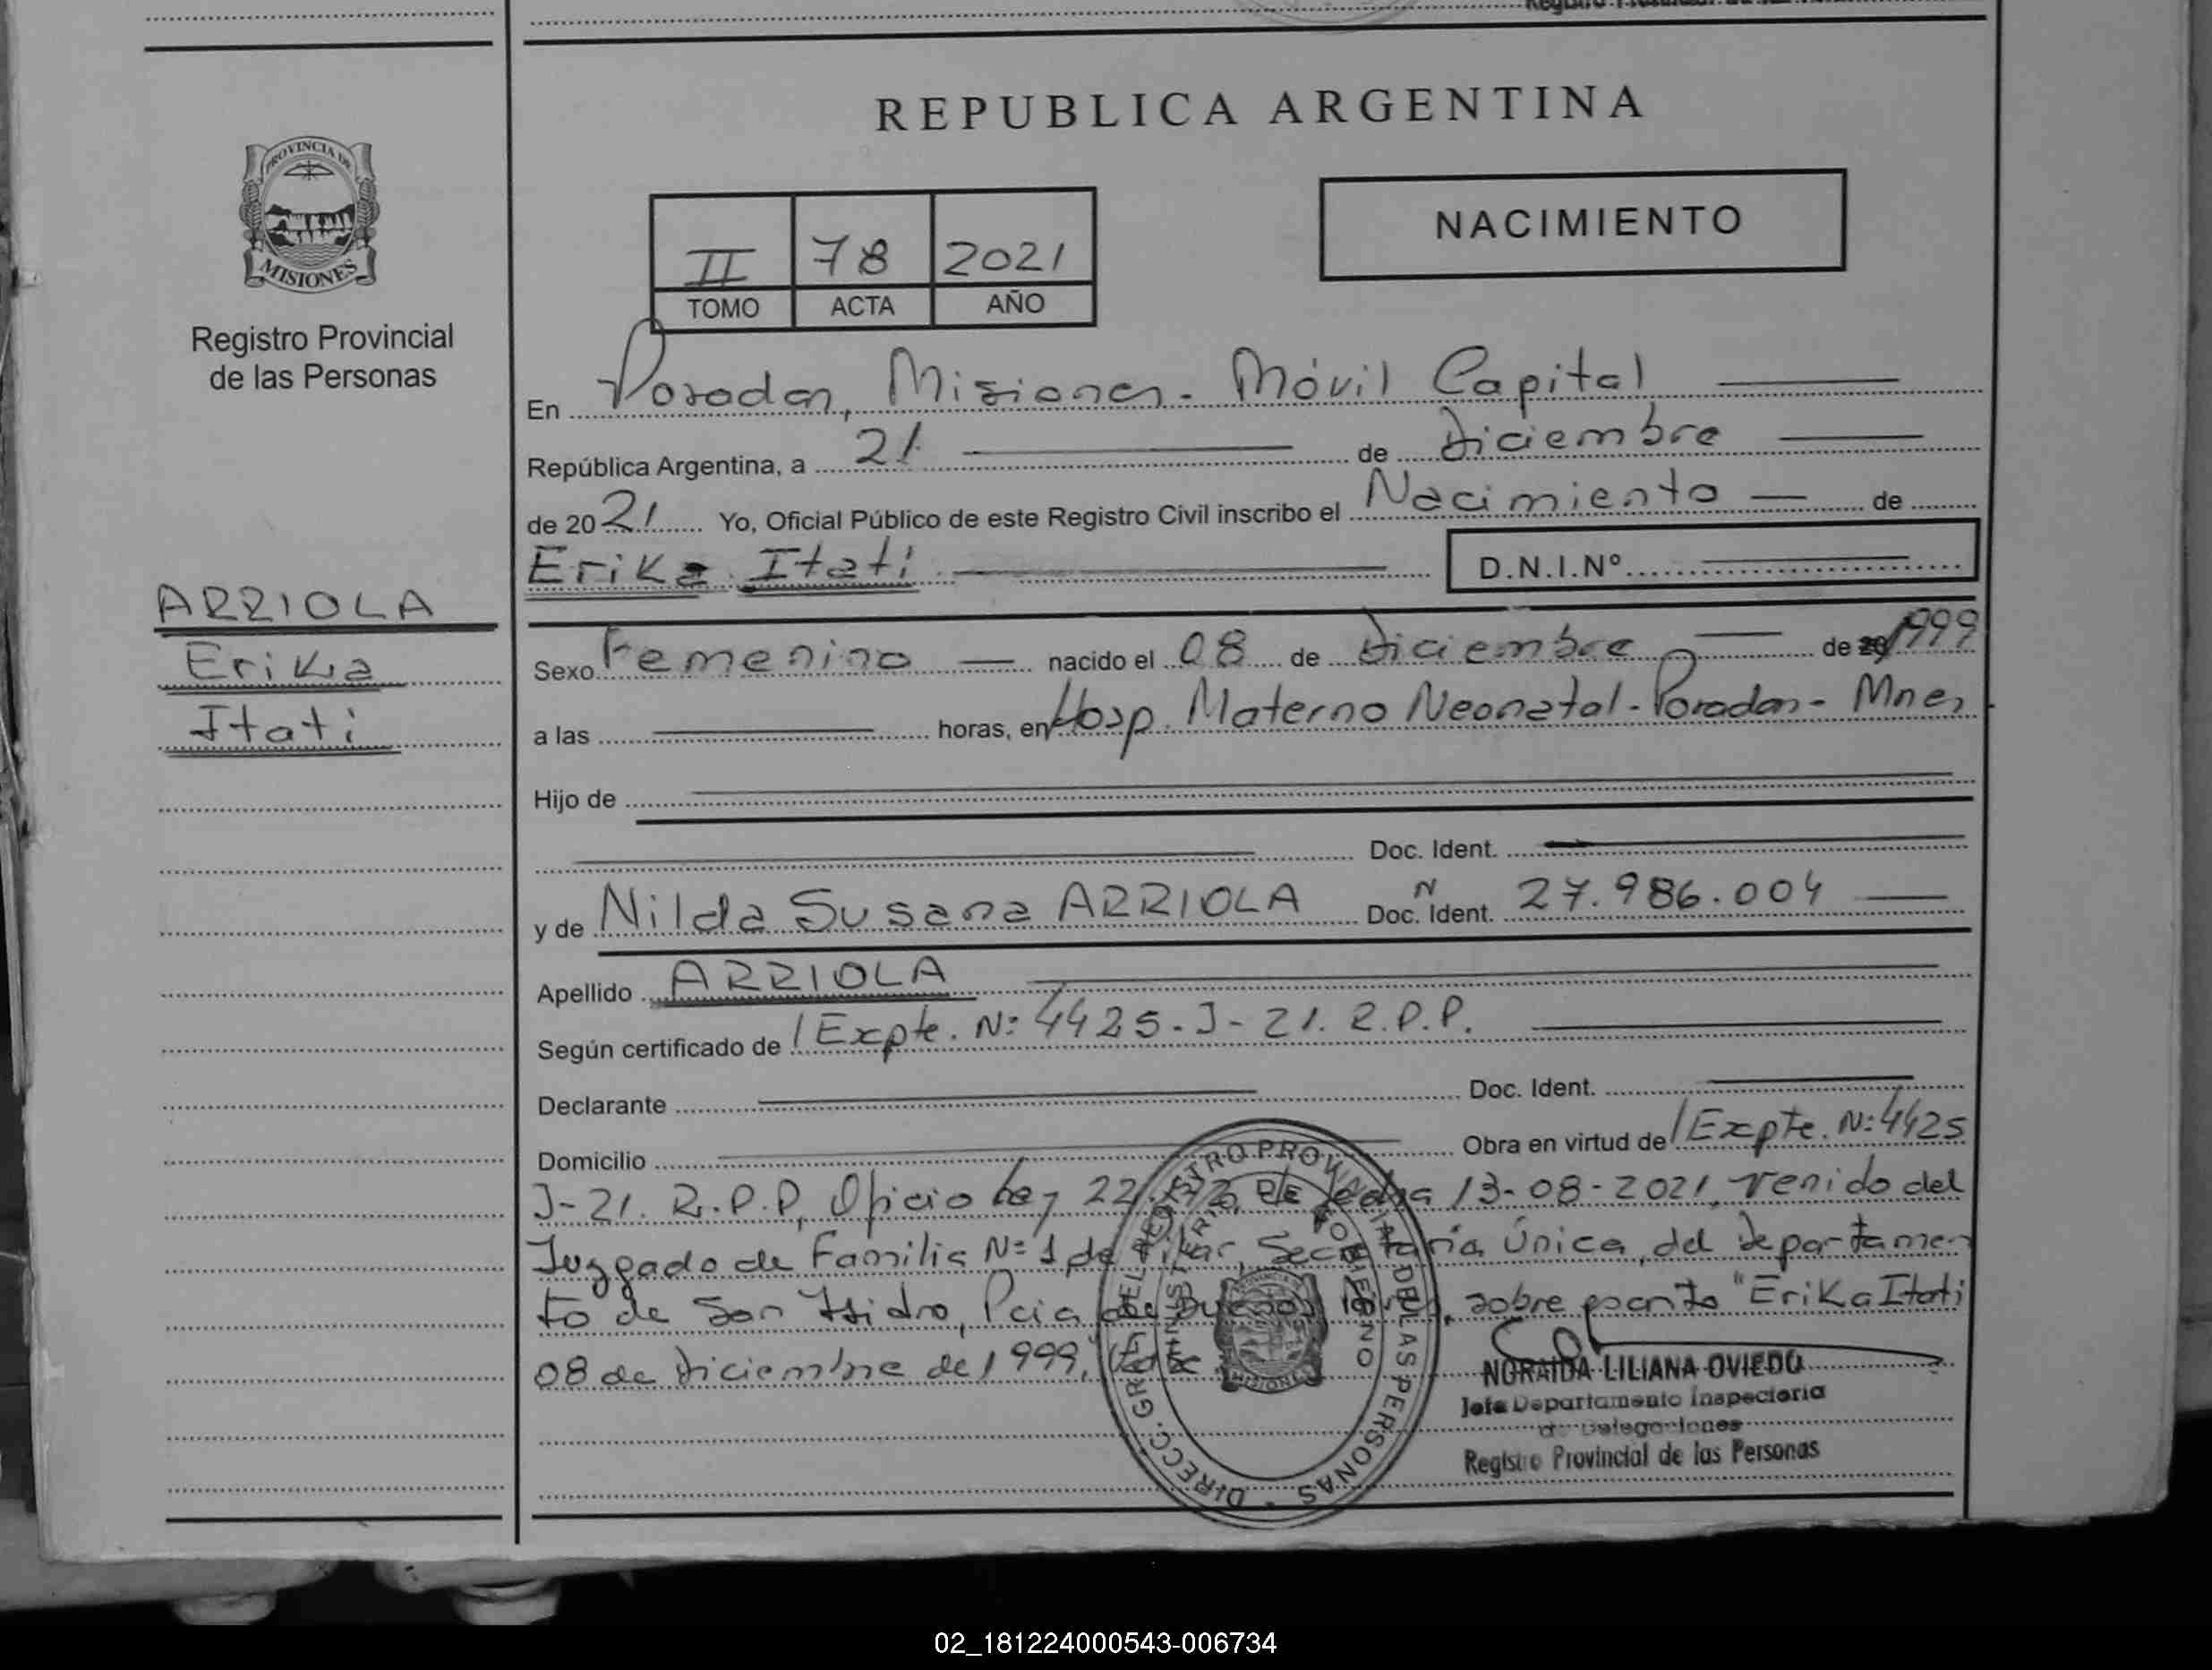 REPUBLICA ARGENTINA
PROVINCIA DE
MISIONES
Registro Provincial
de las Personas
NACIMIENTO
II 78 2021
TOMO ACTA AÑO
En Posadas, Misiones - Móvil Capital
República Argentina, a 21 de Diciembre
de 2021 Yo, Oficial Público de este Registro Civil inscribo el Nacimiento de
Erika Itati D.N.I.Nº
ARRIOLA
Erika
Itati
Sexo Femenino nacido el 08 de Diciembre de 1999
a las horas, en Hosp. Materno Neonatal - Posadas - Mnes
Hijo de
Doc. Ident.
y de Nilda Susana ARRIOLA Doc. Ident. N 27.986.004
Apellido ARRIOLA
Según certificado de / Expte. Nº 4425-J-21. R.P.P.
Declarante Doc. Ident.
Domicilio Obra en virtud de / Expte. Nº 4425
J-21. R.P.P, Oficio Ley 22.172, de fecha 13-08-2021, venido del
Juzgado de Familia Nº 1 de Pilar, Secretaría Única, del Departamen
to de San Isidro, Pcia de Buenos Aires, sobre escrito "Erika Itati
08 de Diciembre de 1999,"
DIRECC. GRAL. DEL REGISTRO PROVINCIAL DE LAS PERSONAS
MINISTERIO DE GOBIERNO
MISIONES
NORAIDA LILIANA OVIEDO
Jefa Departamento Inspectoria
de Delegaciones
Registro Provincial de las Personas
02_181224000543-006734